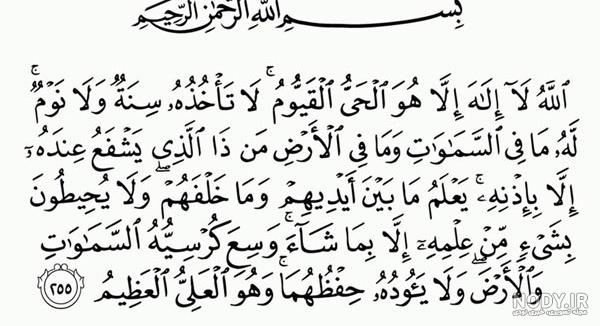 بِسْمِ اللَّهِ الرَّحْمَٰنِ الرَّحِيمِ
اللَّهُ لَا إِلَٰهَ إِلَّا هُوَ الْحَيُّ الْقَيُّومُ ۚ لَا تَأْخُذُهُ سِنَةٌ وَلَا نَوْمٌ ۚ
لَّهُ مَا فِي السَّمَاوَاتِ وَمَا فِي الْأَرْضِ ۗ مَن ذَا الَّذِي يَشْفَعُ عِندَهُ
إِلَّا بِإِذْنِهِ ۚ يَعْلَمُ مَا بَيْنَ أَيْدِيهِمْ وَمَا خَلْفَهُمْ ۖ وَلَا يُحِيطُونَ
بِشَيْءٍ مِّنْ عِلْمِهِ إِلَّا بِمَا شَاءَ ۚ وَسِعَ كُرْسِيُّهُ السَّمَاوَاتِ
وَالْأَرْضَ ۖ وَلَا يَئُودُهُ حِفْظُهُمَا ۚ وَهُوَ الْعَلِيُّ الْعَظِيمُ ٢٥٥
NODY.IR